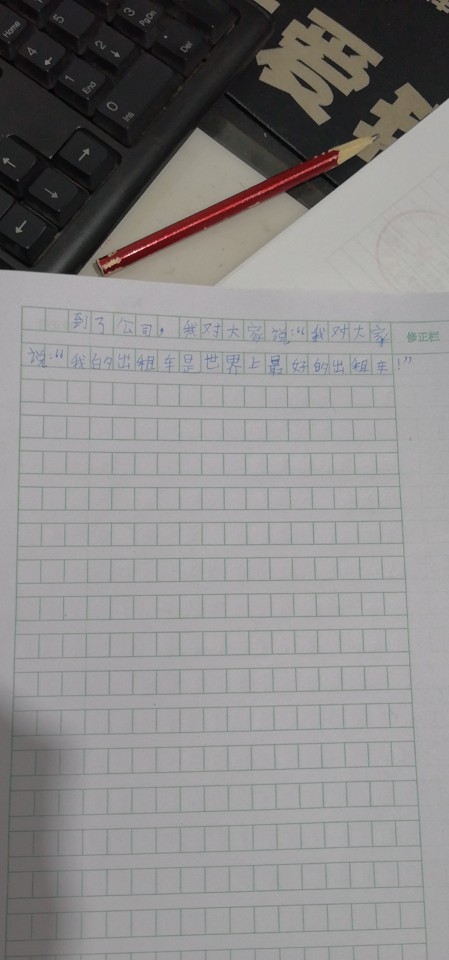 Home
5
3
PgDn
4
←
2
↓
Del
1
End
0
Ins
←
→
←
→
爱
到了公司，我对大家说:“我对大家
修正栏
说:“我的出租车是世界上最好的出租车!”